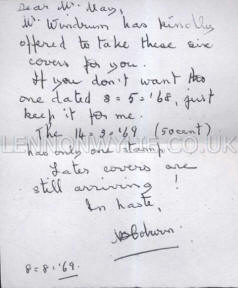 Dear Mr. May,
Mr. Windrum has kindly
offered to take these six
covers for you.
If you don't want the
one dated 8=5='68, just
keep it for me.
The 14=3='69 (50cent)
has only one stamp.
Later covers are
still arriving!
In haste,
8=8='69.